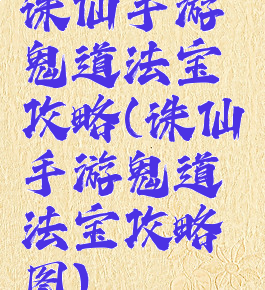 诛仙手游
鬼道法宝
攻略(诛仙
手游鬼道
法宝攻略
图)